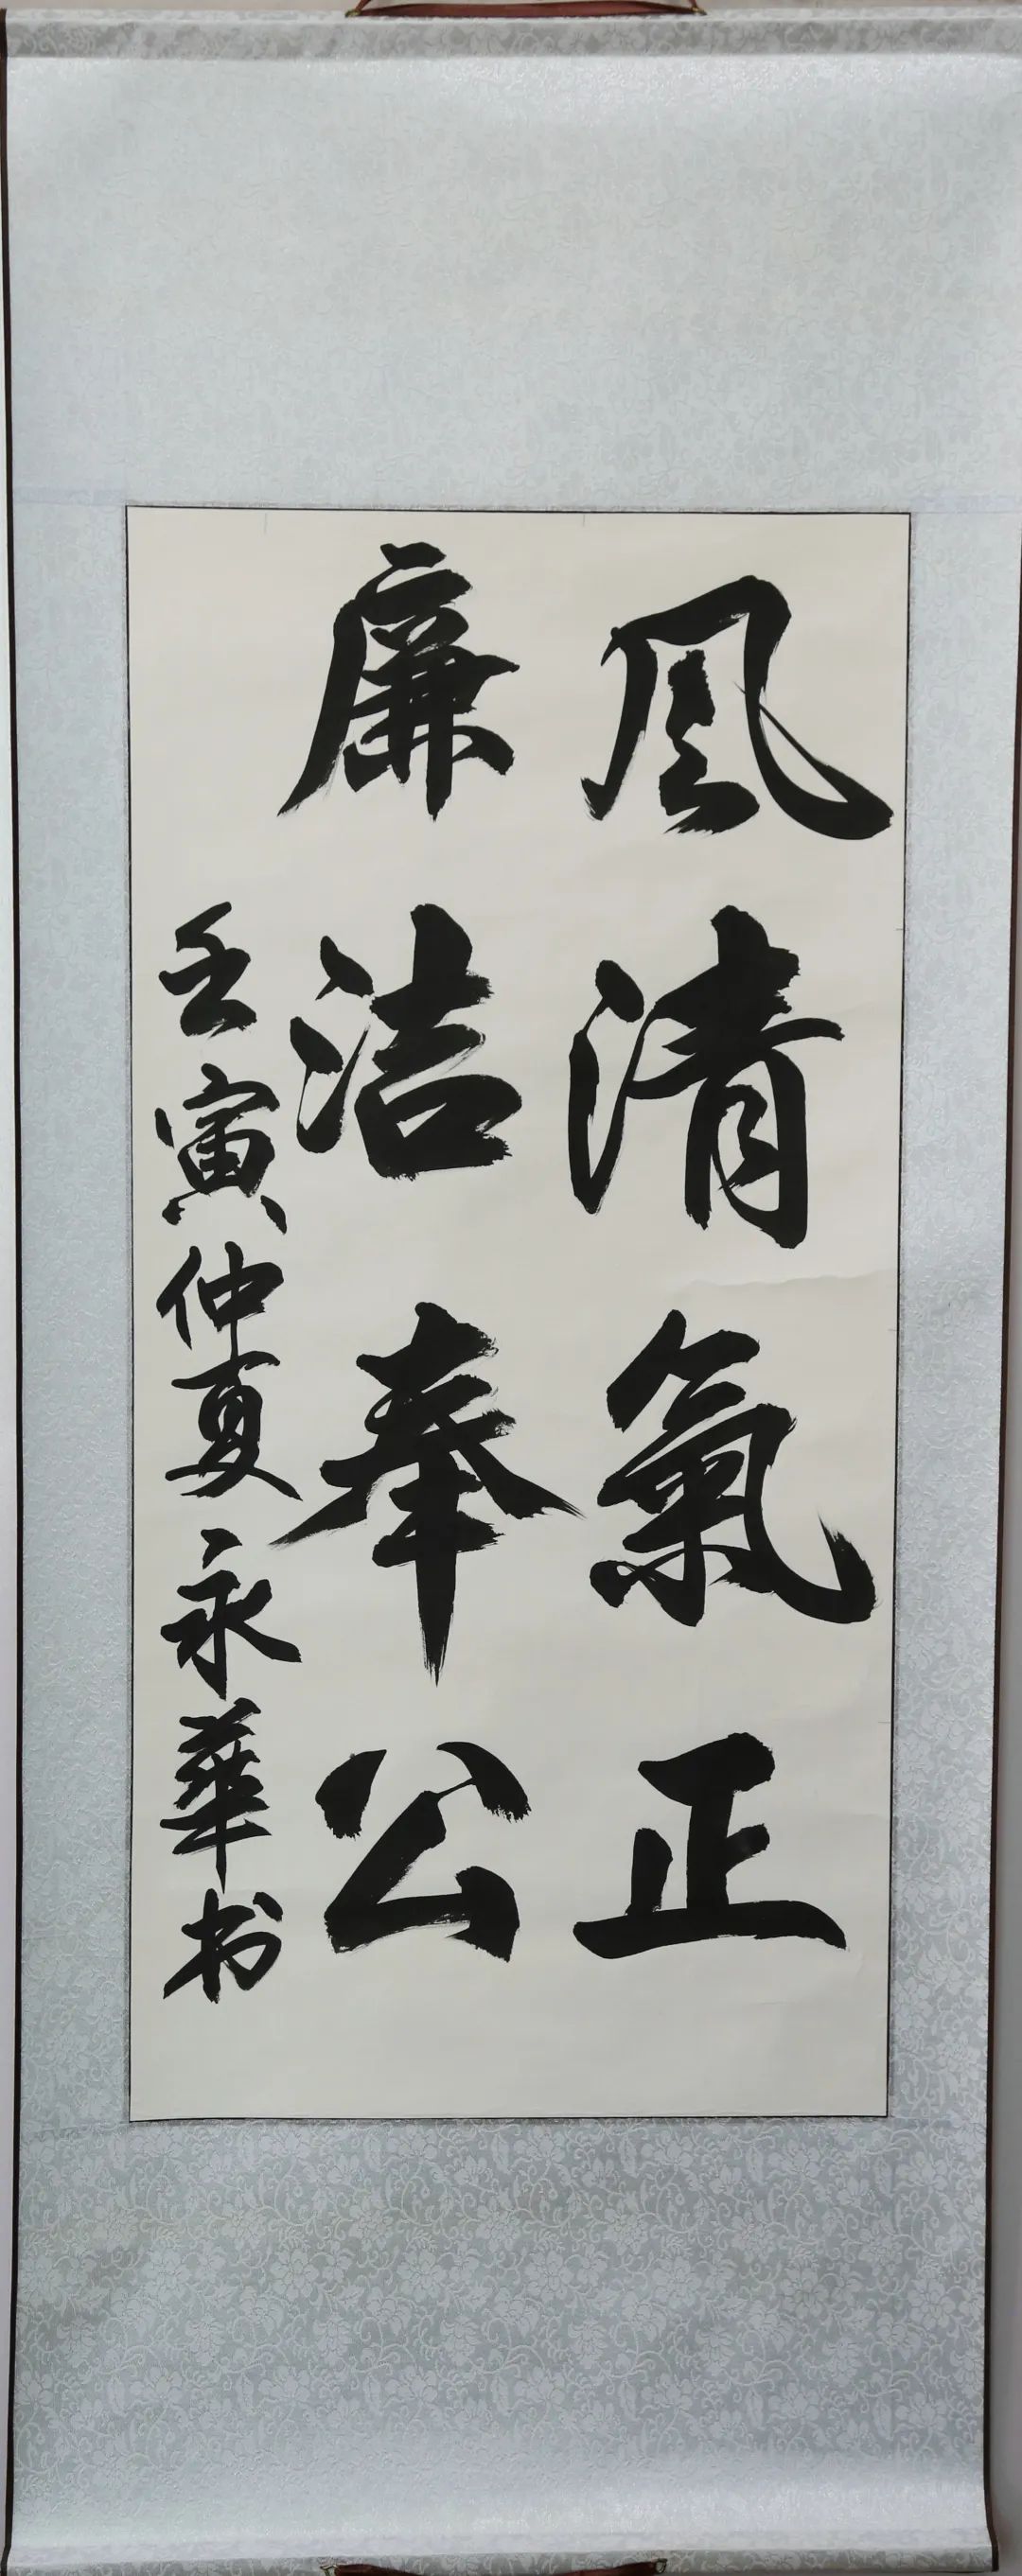 風清氣正
廉洁奉公
壬寅仲夏永華书